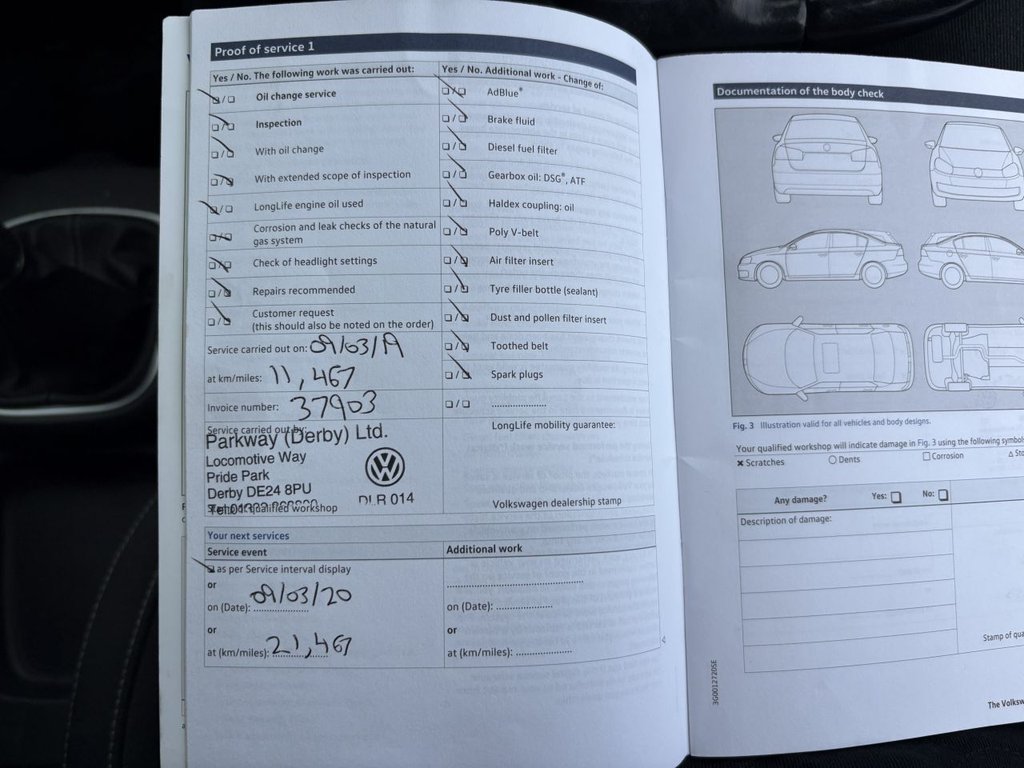 Proof of service 1
Yes / No. The following work was carried out:
Oil change service
Inspection
With oil change
With extended scope of inspection
LongLife engine oil used
Corrosion and leak checks of the natural
gas system
Check of headlight settings
Repairs recommended
Customer request
(this should also be noted on the order)
Service carried out on: 09/03/19
at km/miles: 11,467
Invoice number: 37903
Service carried out by:
Parkway (Derby) Ltd.
Locomotive Way
Pride Park
Derby DE24 8PU
DLR 014
qualified workshop
Yes / No. Additional work - Change of:
AdBlue®
Brake fluid
Diesel fuel filter
Gearbox oil: DSG®, ATF
Haldex coupling: oil
Poly V-belt
Air filter insert
Tyre filler bottle (sealant)
Dust and pollen filter insert
Toothed belt
Spark plugs
LongLife mobility guarantee:
Volkswagen dealership stamp
Your next services
Service event
as per Service interval display
or
on (Date): 09/03/20
or
at (km/miles): 21,467
Additional work
on (Date):
or
at (km/miles):
Documentation of the body check
Fig. 3 Illustration valid for all vehicles and body designs.
Your qualified workshop will indicate damage in Fig. 3 using the following symbols
Scratches Dents Corrosion
Any damage? Yes: No:
Description of damage:
Stamp of
3G0012720SE
The